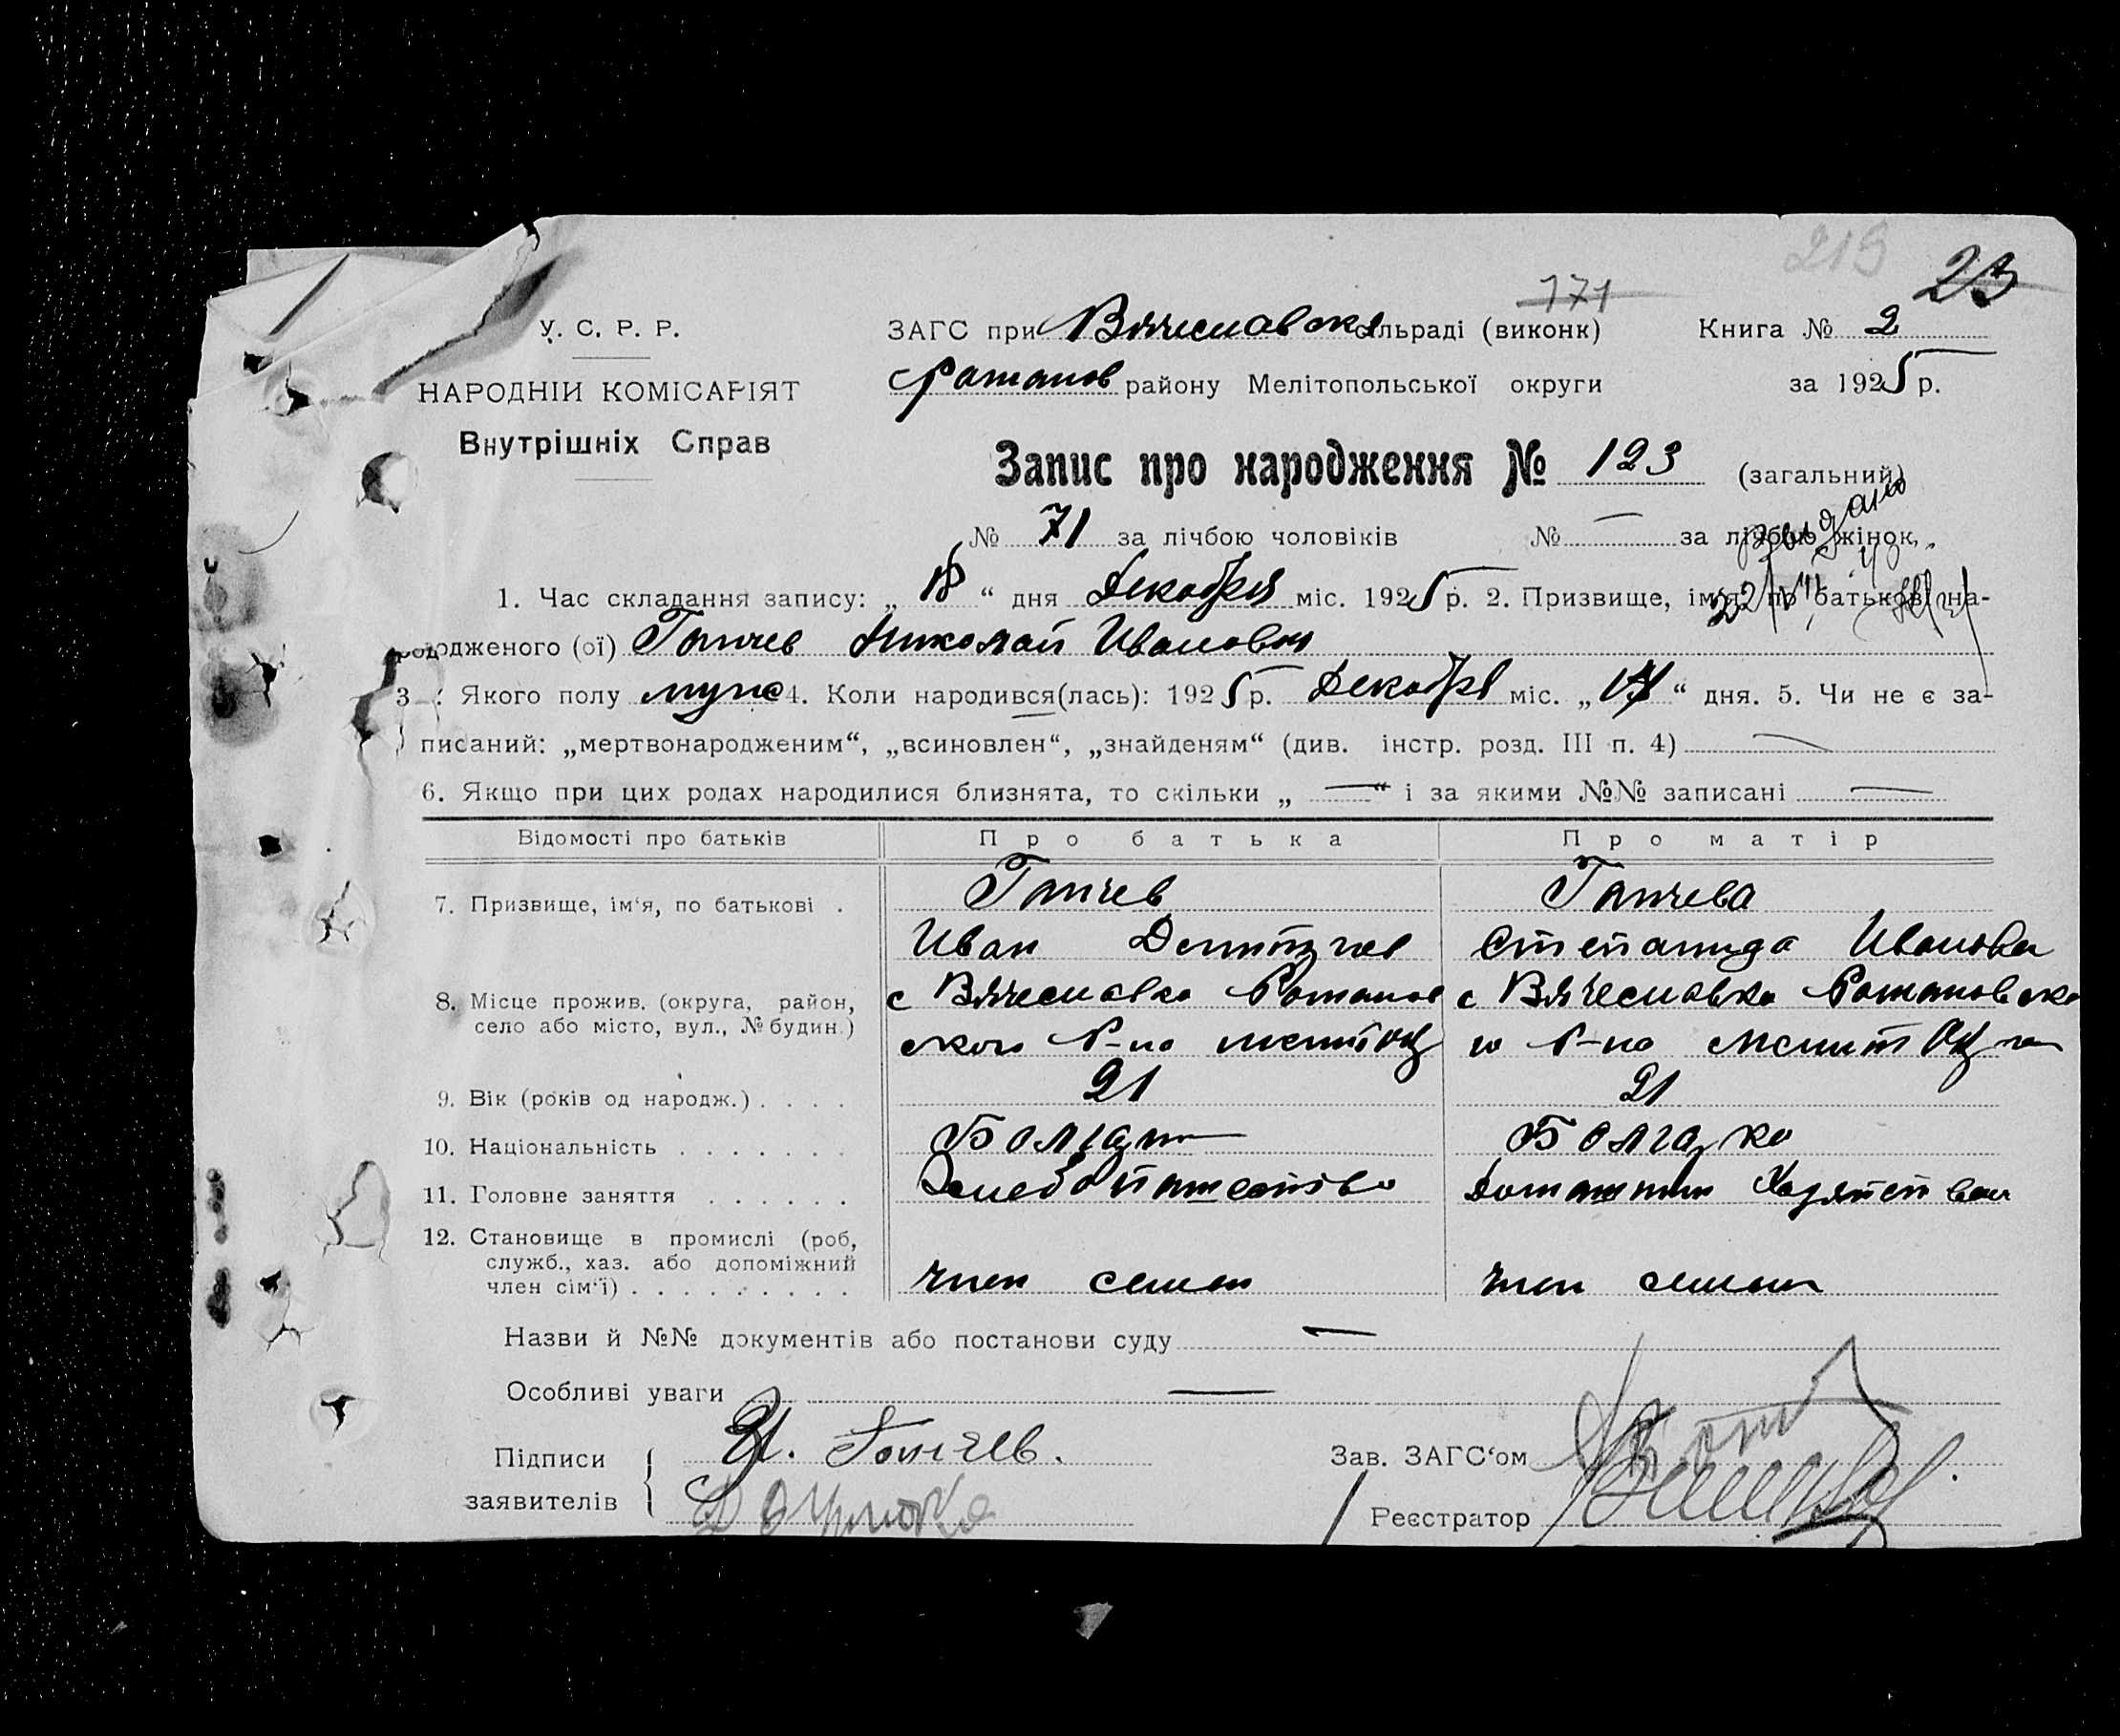 219 23
171
У. С. Р. Р.
ЗАГС при Вячеславск сільраді (виконк) Книга № 2
НАРОДНІЙ КОМІСАРІЯТ
Романов району Мелітопольської округи за 1925 р.
Внутрішніх Справ
Запис про народження № 123 (загальний)
№ 71 за лічбою чоловіків № — за лічбою жінок,
1. Час складання запису: „ 18 “ дня Декабря міс. 1925 р. 2. Призвище, ім'я, по батькові на-
родженого (ої) Ганчев Николай Иванович
3. Якого полу муж 4. Коли народився(лась): 1925 р. Декабря міс. „ 17 “ дня. 5. Чи не є за-
писаний: „мертвонародженим“, „всиновлен“, „знайденям“ (див. інстр. розд. III п. 4) —
6. Якщо при цих родах народилися близнята, то скільки „ — “ і за якими №№ записані —
Відомості про батьків Про батька Про матір
7. Призвище, ім‘я, по батькові . Ганчев Ганчева
Иван Дмитриев Степанида Иванова
8. Місце прожив. (округа, район, с Вячеславка Романов с Вячеславка Романовско
село або місто, вул., № будин.) ского Р-на Мелит Окр го Р-на Мелит Окр
9. Вік (років од народж.) . . . . 21 21
10. Національність . . . . . . . Болгар Болгарка
11. Головне заняття . . . . . . Хлебопашество Домашнин Хозяйств
12. Становище в промислі (роб,
служб., хаз. або допоміжний
член сім‘ї) . . . . . . . . . член семьи член семьи
Назви й №№ документів або постанови суду —
Особливі уваги —
Підписи И. Ганчев. Зав. ЗАГС‘ом
заявителів
Реєстратор